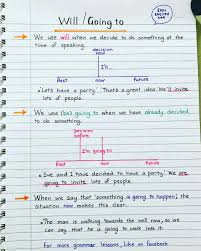 Will / Going to
EASY
ENGLISH
4 all
We use will when we decide to do something at the
time of speaking.
decision
now
I'll
Past now future
Let's have a party.' That's a great idea. We'll invite
lots of people.
We use (be) going to when we have already decided
to do something.
decision
before
I'm going to
Past now future
Sue and I have decided to have a party. We are
going to invite lots of people.
When we say that 'something is going to happen', the
situation now makes this clear.
The man is walking towards the wall now, so we
can say, that he is going to walk into it.
For more grammar lessons, like on Facebook